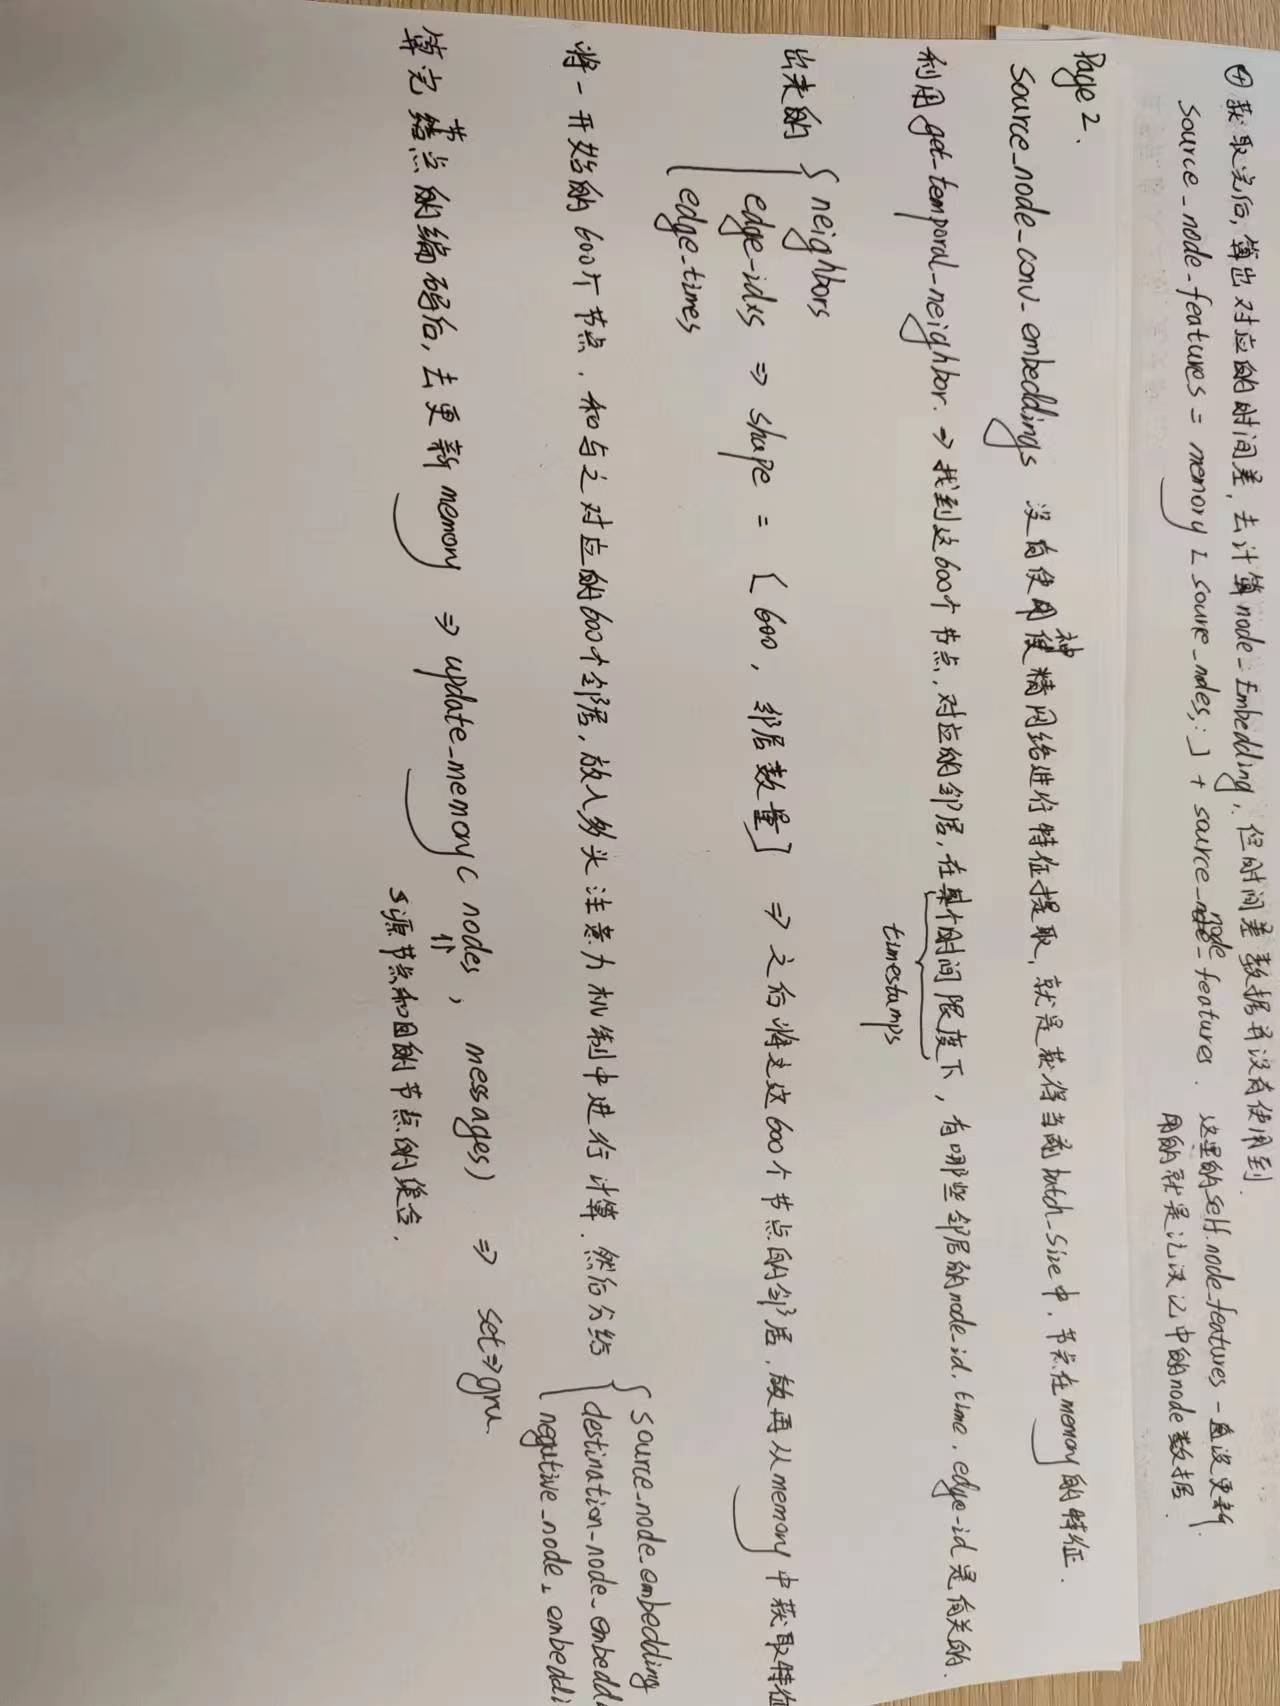 ④ 获取完后, 算出对应的时间差, 去计算node_Embedding, 但时间差数据并没有使用到.
source_node_features = memory [soure_nodes,:] + source_node_features.
这里的self.node_features一直没更新.
用的就是记录中的node数据.
Page 2.
source_node_conv_embeddings 没有使用神精网络进行特征提取, 就是获得当前batch_size中, 节点在memory的特征.
利用get_temporal_neighbor. ⇒ 找到这600个节点, 对应的邻居, 在某个时间限度下, 有哪些邻居的node_id, time, edge_id是有关的.
timestamps
出来的 { neighbors
edge_idxs ⇒ shape = [600, 邻居数量] ⇒ 之后将这600个节点的邻居, 再从memory中获取特征
edge_times
将一开始的600个节点, 和与之对应的600个邻居, 放入多头注意力机制中进行计算, 然后分给 { source_node_embedding
destination_node_embeddi
negutive_node_embeddi
算完节点的编码后, 去更新memory ⇒ update_memory( nodes, messages) ⇒ set⇒gru.
⇑
源节点和目的节点的集合.